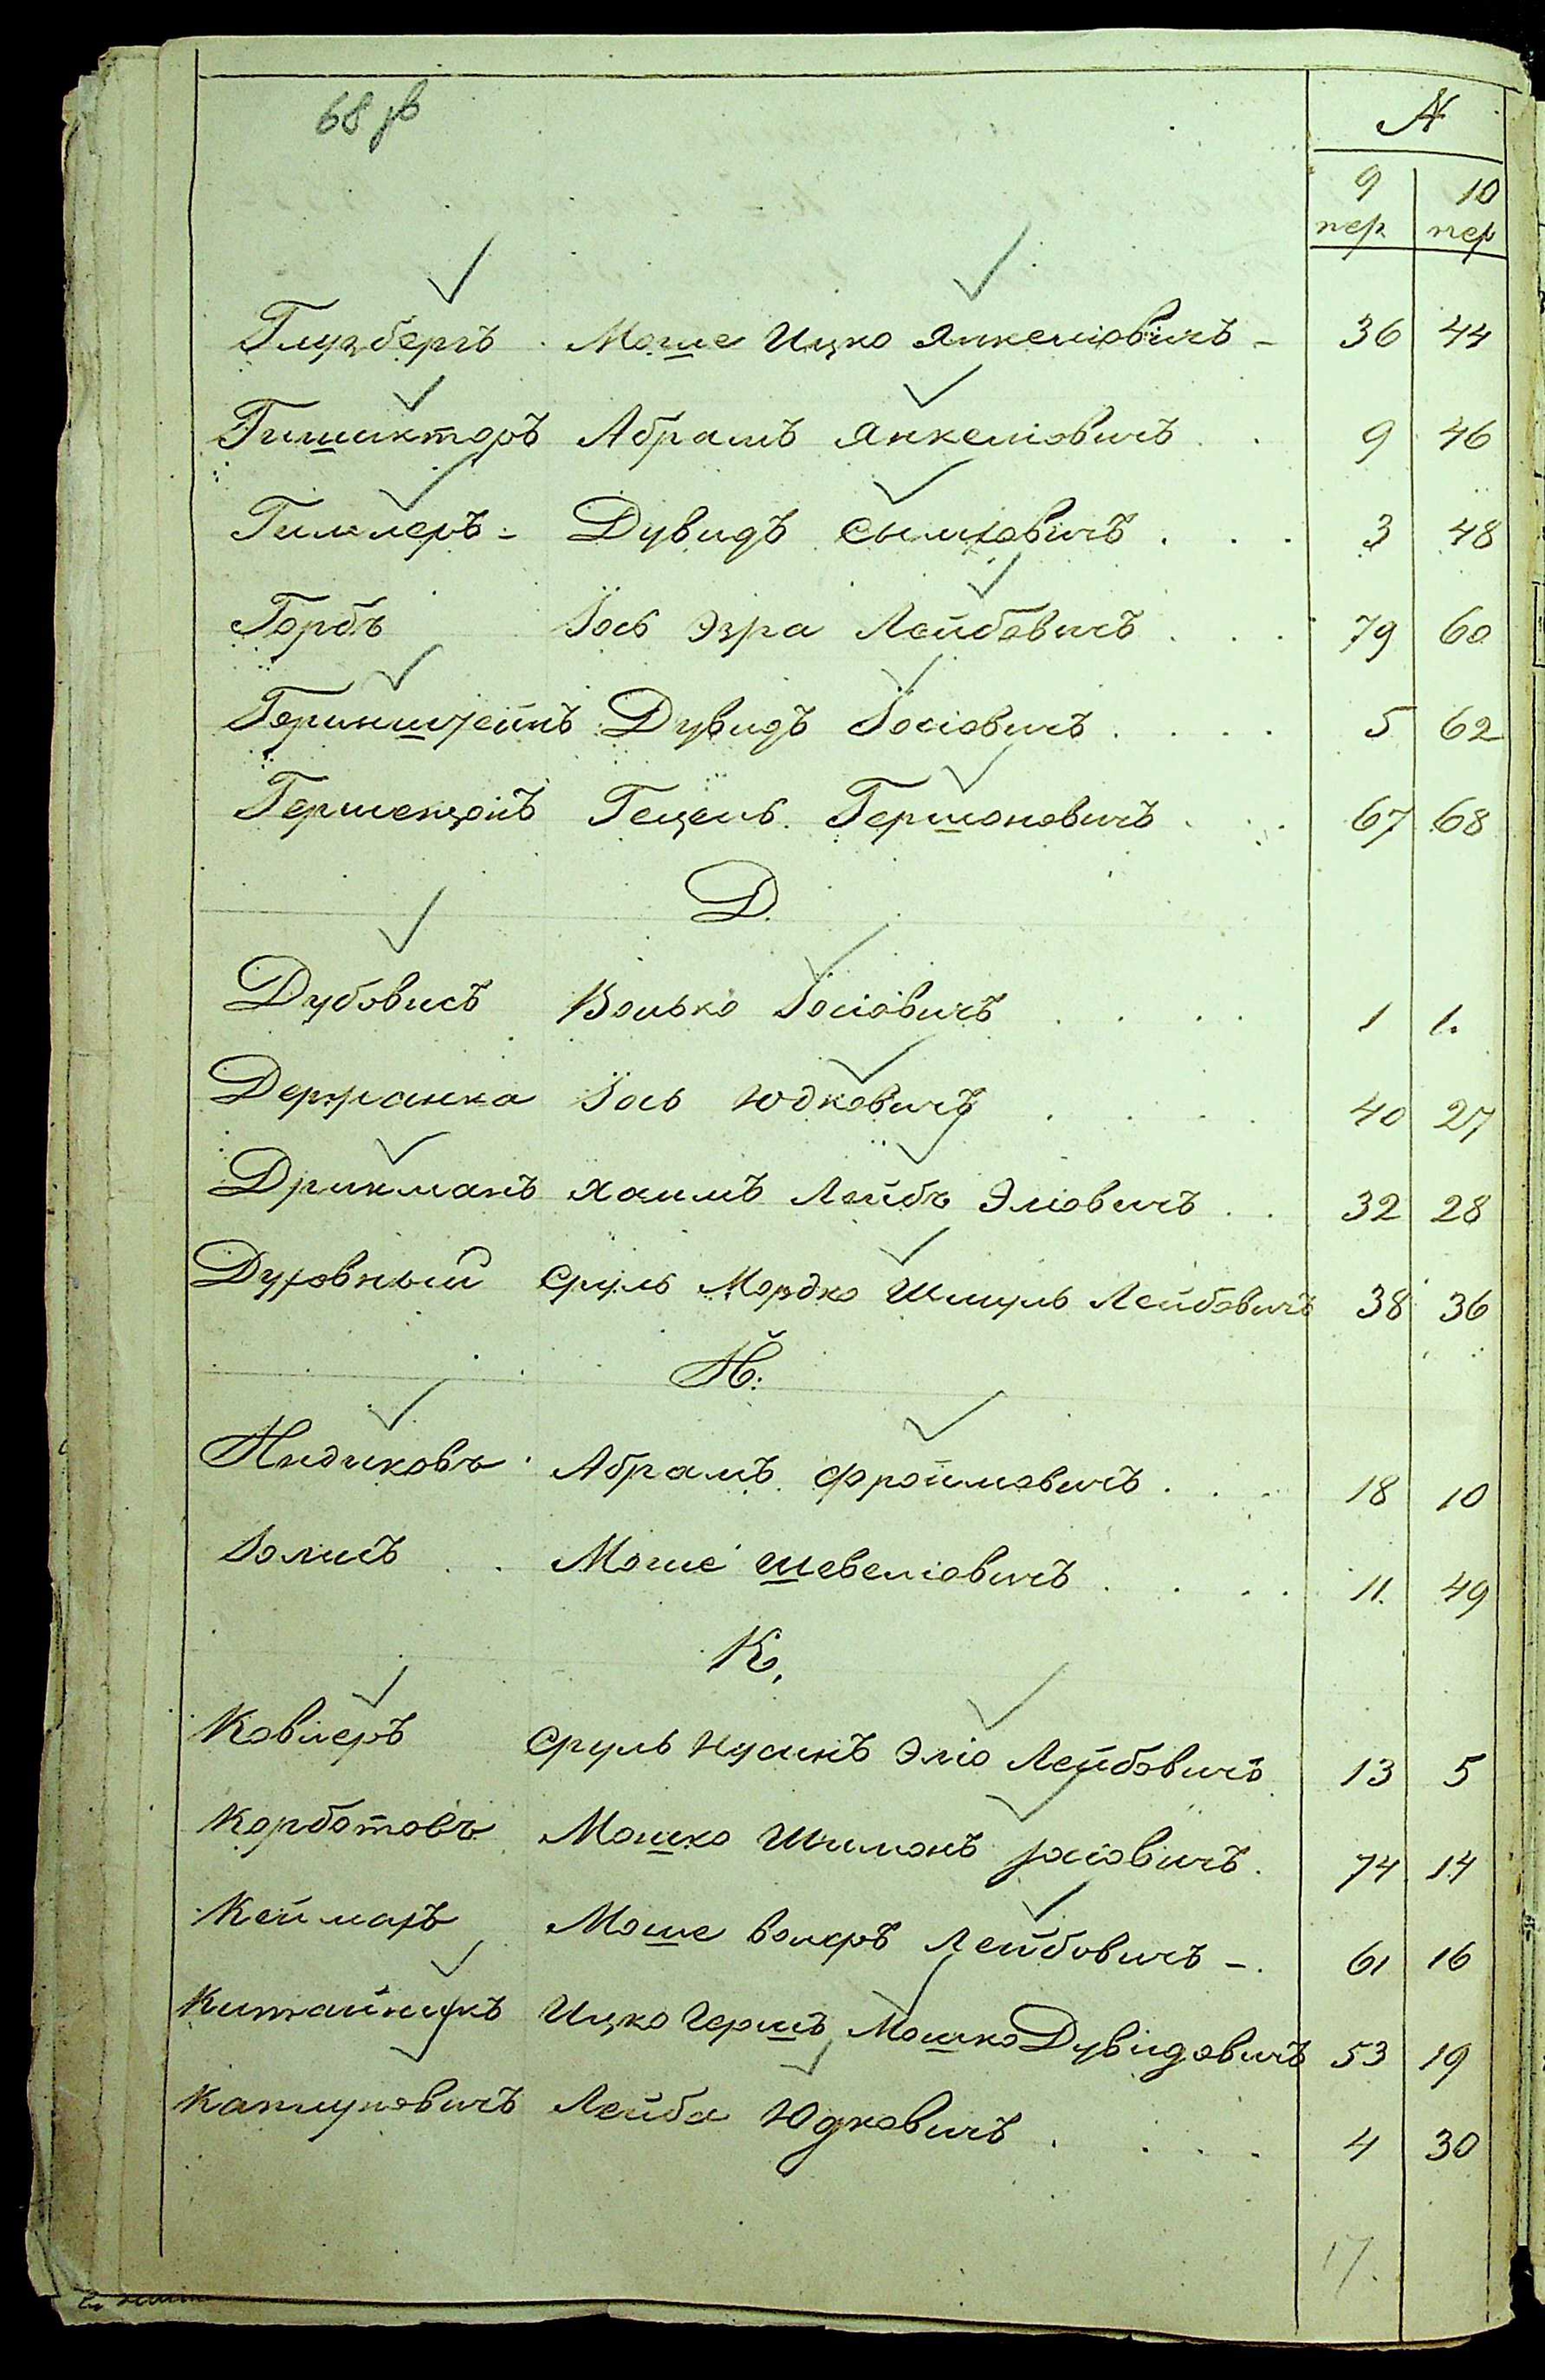 68 об
№
9 10
пер пер
Глузбергъ Моше Ицко Янкеліовичъ - 36 44
Гишикторъ Абрамъ Янкеліовичъ 9 46
Гимлеръ - Дувидъ Сымховичъ 3 48
Горбъ Іось Эзра Лейбовичъ 79 60
Геринштейнъ Дувидъ Іосіовичъ 5 62
Гершензонъ Гецель Гершоновичъ 67 68
Д.
Дубовисъ Волько Іосіовичъ 1 1.
Держанка Іось Юдковичъ 40 27
Дрикманъ Хаимъ Лейбъ Эліовичъ 32 28
Духовный Сруль Мордко Шмуль Лейбовичъ 38 36
Й:
Индиковъ Абрамъ Фроймовичъ 18 10
Іолисъ Моше Шевеліовичъ 11. 49
К.
Ковлеръ Сруль Нусинъ Эліо Лейбовичъ 13 5
Корботовъ Мошко Шимонъ Іосіовичъ 74 14
Кеймахъ Моше Волфъ Лейбовичъ - 61 16
Китайникъ Ицко Гершъ Мошко Дувидовичъ 53 19
Каплуновичъ Лейба Юдковичъ 4 30
17.